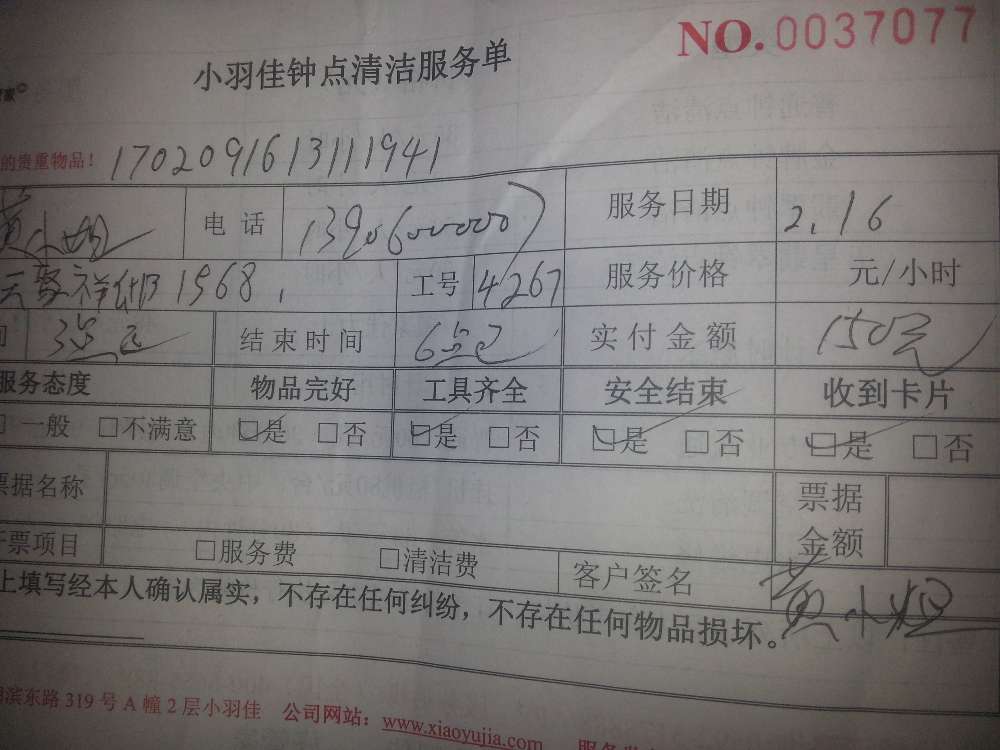 NO.0037077
小羽佳钟点清洁服务单
的贵重物品! 1702091613111941
黄小姐 电话 13906000007 服务日期 2.16
1968. 工号 4267 服务价格 元/小时
3点正 结束时间 6点正 实付金额 150元
服务态度 物品完好 工具齐全 安全结束 收到卡片
□一般 □不满意 ☑是 □否 ☑是 □否 ☑是 □否 ☑是 □否
票据名称 票据金额
开票项目 □服务费 □清洁费 客户签名 黄小姐
上填写经本人确认属实，不存在任何纠纷，不存在任何物品损坏。
滨东路319号A幢2层小羽佳 公司网站：www.xiaoyujia.com